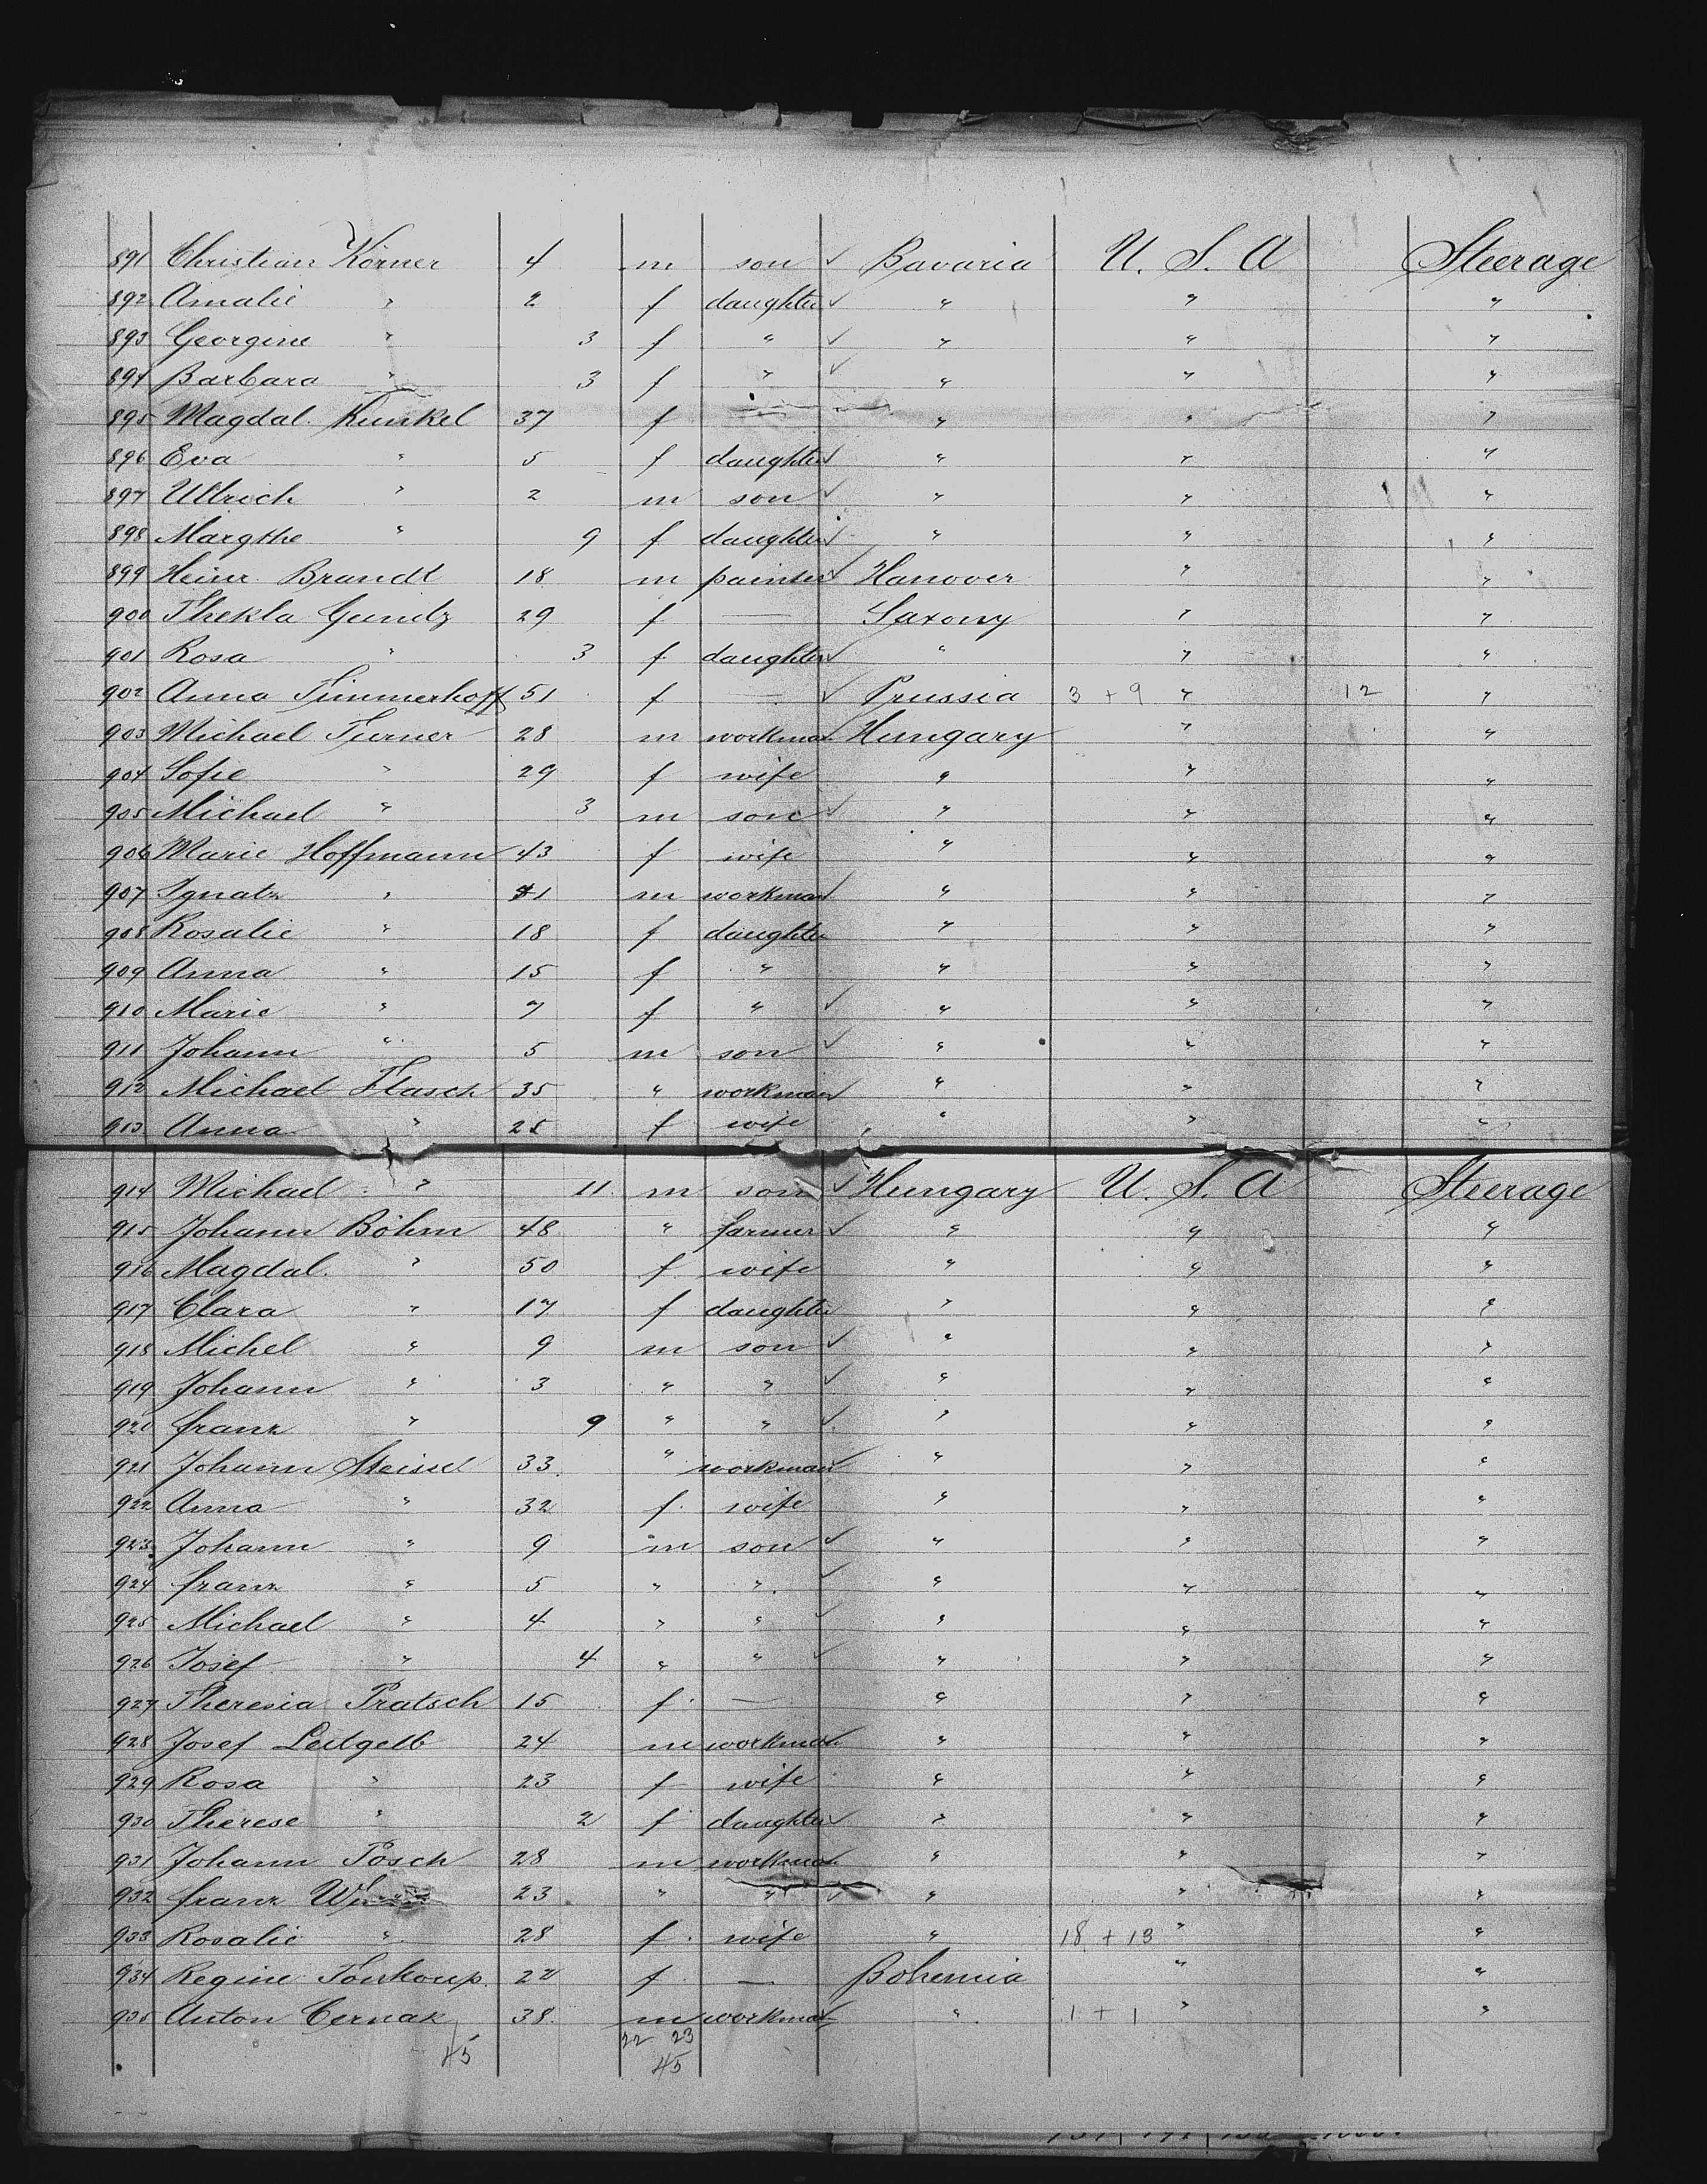 891 Christian Körner 4 m son ✓ Bavaria U. S. A Steerage
892 Amalie " 2 f daughter ✓ " " "
893 Georgine " 3 f " ✓ " " "
894 Barbara " 3 f " ✓ " " "
895 Magdal. Kunkel 37 f — " " "
896 Eva " 5 f daughter ✓ " " "
897 Ullrich " 2 m son ✓ " " "
898 Margthe " 9 f daughter ✓ " " "
899 Heinr. Brandt 18 m painter ✓ Hanover " "
900 Thekla Gundz 29 f — Saxony " "
901 Rosa " 3 f daughter ✓ " " "
902 Anna Timmerhoff 51 f — ✓ Prussia 3 + 9 " 12 "
903 Michael Turner 28 m workman Hungary " "
904 Sofie " 29 f wife " " "
905 Michael " 3 m son ✓ " " "
906 Marie Hoffmann 43 f wife " " "
907 Ignatz " 41 m workman ✓ " " "
908 Rosalie " 18 f daughter " " "
909 Anna " 15 f " " " "
910 Marie " 7 f " ✓ " " "
911 Johann " 5 m son ✓ " " "
912 Michael Flasch 35 " workman ✓ " " "
913 Anna " 25 f wife " " "
914 Michael " 11 m son ✓ Hungary U. S. A Steerage
915 Johann Böhm 48 " farmer ✓ " " "
916 Magdal. " 50 f wife " " "
917 Clara " 17 f daughter " " "
918 Michel " 9 m son ✓ " " "
919 Johann " 3 " " ✓ " " "
920 franz " 9 " " ✓ " " "
921 Johann Meissel 33 " workman ✓ " " "
922 Anna " 32 f. wife " " "
923 Johann " 9 m son ✓ " " "
924 franz " 5 " " ✓ " " "
925 Michael " 4 " " ✓ " " "
926 Josef " 4 " " ✓ " " "
927 Theresia Pratsch 15 f. — " " "
928 Josef Leitgeb 24 m workman ✓ " " "
929 Rosa " 23 f wife " " "
930 Therese " 2 f daughter ✓ " " "
931 Johann Posch 28 m workman " " "
932 franz 23 " " ✓ " " "
933 Rosalie " 28 f. wife " 18 + 13 " "
934 Regine Tonkoup. 22 f — Bohemia " "
935 Anton Cernak 38. m workman ✓ " 1 + 1 " "
45 22 23
45